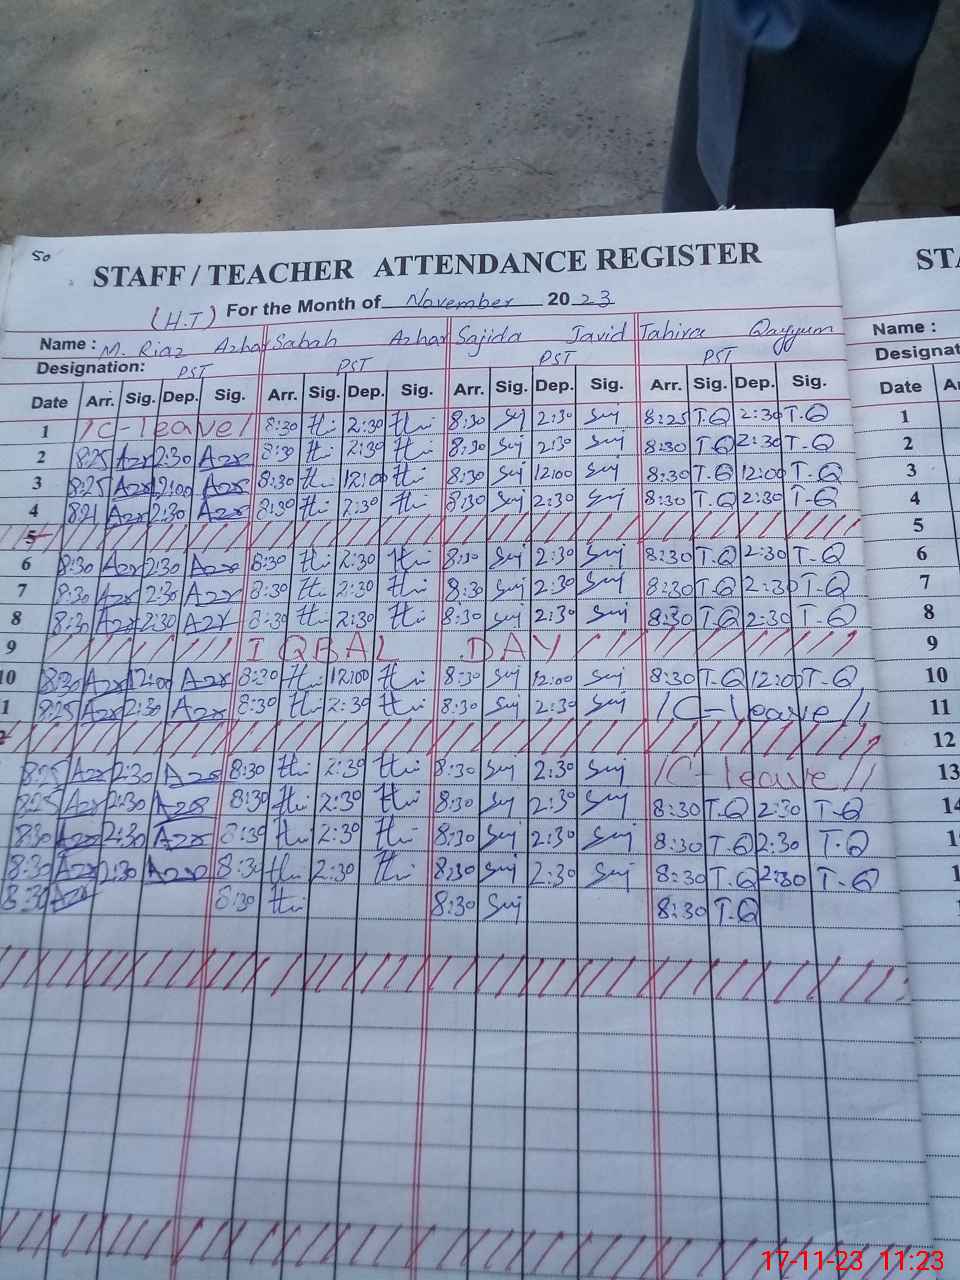 50
STAFF / TEACHER ATTENDANCE REGISTER STA
(H.T) For the Month of November 20 23
Name : M. Riaz Azhar Sabah Azhar Sajida Javid Tahira Qayyum Name :
Designation: PST PST PST PST Designat
Date Arr. Sig. Dep. Sig. Arr. Sig. Dep. Sig. Arr. Sig. Dep. Sig. Arr. Sig. Dep. Sig. Date A
1 1C-leave/ 8:30 2:30 8:30 Suj 2:30 Suj 8:25 T.Q 2:30 T.Q 1
2 8:25 Azr 2:30 Azr 8:30 2:30 8:30 Suj 2:30 Suj 8:30 T.Q 2:30 T.Q 2
3 8:25 Azr 12:00 Azr 8:30 12:00 8:30 Suj 12:00 Suj 8:30 T.Q 12:00 T.Q 3
4 8:21 Azr 2:30 Azr 8:30 2:30 8:30 Suj 2:30 Suj 8:30 T.Q 2:30 T.Q 4
5 5
6 8:30 Azr 2:30 Azr 8:30 2:30 8:30 Suj 2:30 Suj 8:30 T.Q 2:30 T.Q 6
7 8:30 Azr 2:30 Azr 8:30 2:30 8:30 Suj 2:30 Suj 8:30 T.Q 2:30 T.Q 7
8 8:30 Azr 2:30 Azr 8:30 2:30 8:30 Suj 2:30 Suj 8:30 T.Q 2:30 T.Q 8
9 IQBAL DAY 9
10 8:30 Azr 12:00 Azr 8:30 12:00 8:30 Suj 12:00 Suj 8:30 T.Q 12:00 T.Q 10
1 8:25 Azr 2:30 Azr 8:30 2:30 8:30 Suj 2:30 Suj 1C-leave 11
2 12
8:25 Azr 2:30 Azr 8:30 2:30 8:30 Suj 2:30 Suj 1C-leave 13
8:25 Azr 2:30 Azr 8:30 2:30 8:30 Suj 2:30 Suj 8:30 T.Q 2:30 T.Q 14
8:30 Azr 2:30 Azr 8:30 2:30 8:30 Suj 2:30 Suj 8:30 T.Q 2:30 T.Q 1
8:30 Azr 2:30 Azr 8:30 2:30 8:30 Suj 2:30 Suj 8:30 T.Q 2:30 T.Q 1
8:30 Azr 8:30 8:30 Suj 8:30 T.Q
17-11-23 11:23